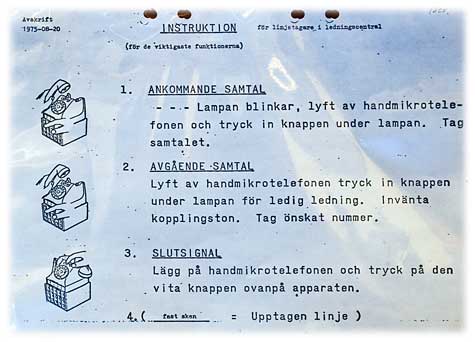 Avskrift
1975-08-20
INSTRUKTION för linjetagare i ledningscentral
(för de viktigaste funktionerna)
1. ANKOMMANDE SAMTAL
- - - Lampan blinkar, lyft av handmikrotele-
fonen och tryck in knappen under lampan. Tag
samtalet.
2. AVGÅENDE SAMTAL
Lyft av handmikrotelefonen tryck in knappen
under lampan för ledig ledning. Invänta
kopplingston. Tag önskat nummer.
3. SLUTSIGNAL
Lägg på handmikrotelefonen och tryck på den
vita knappen ovanpå apparaten.
4. ( fast sken = Upptagen linje )